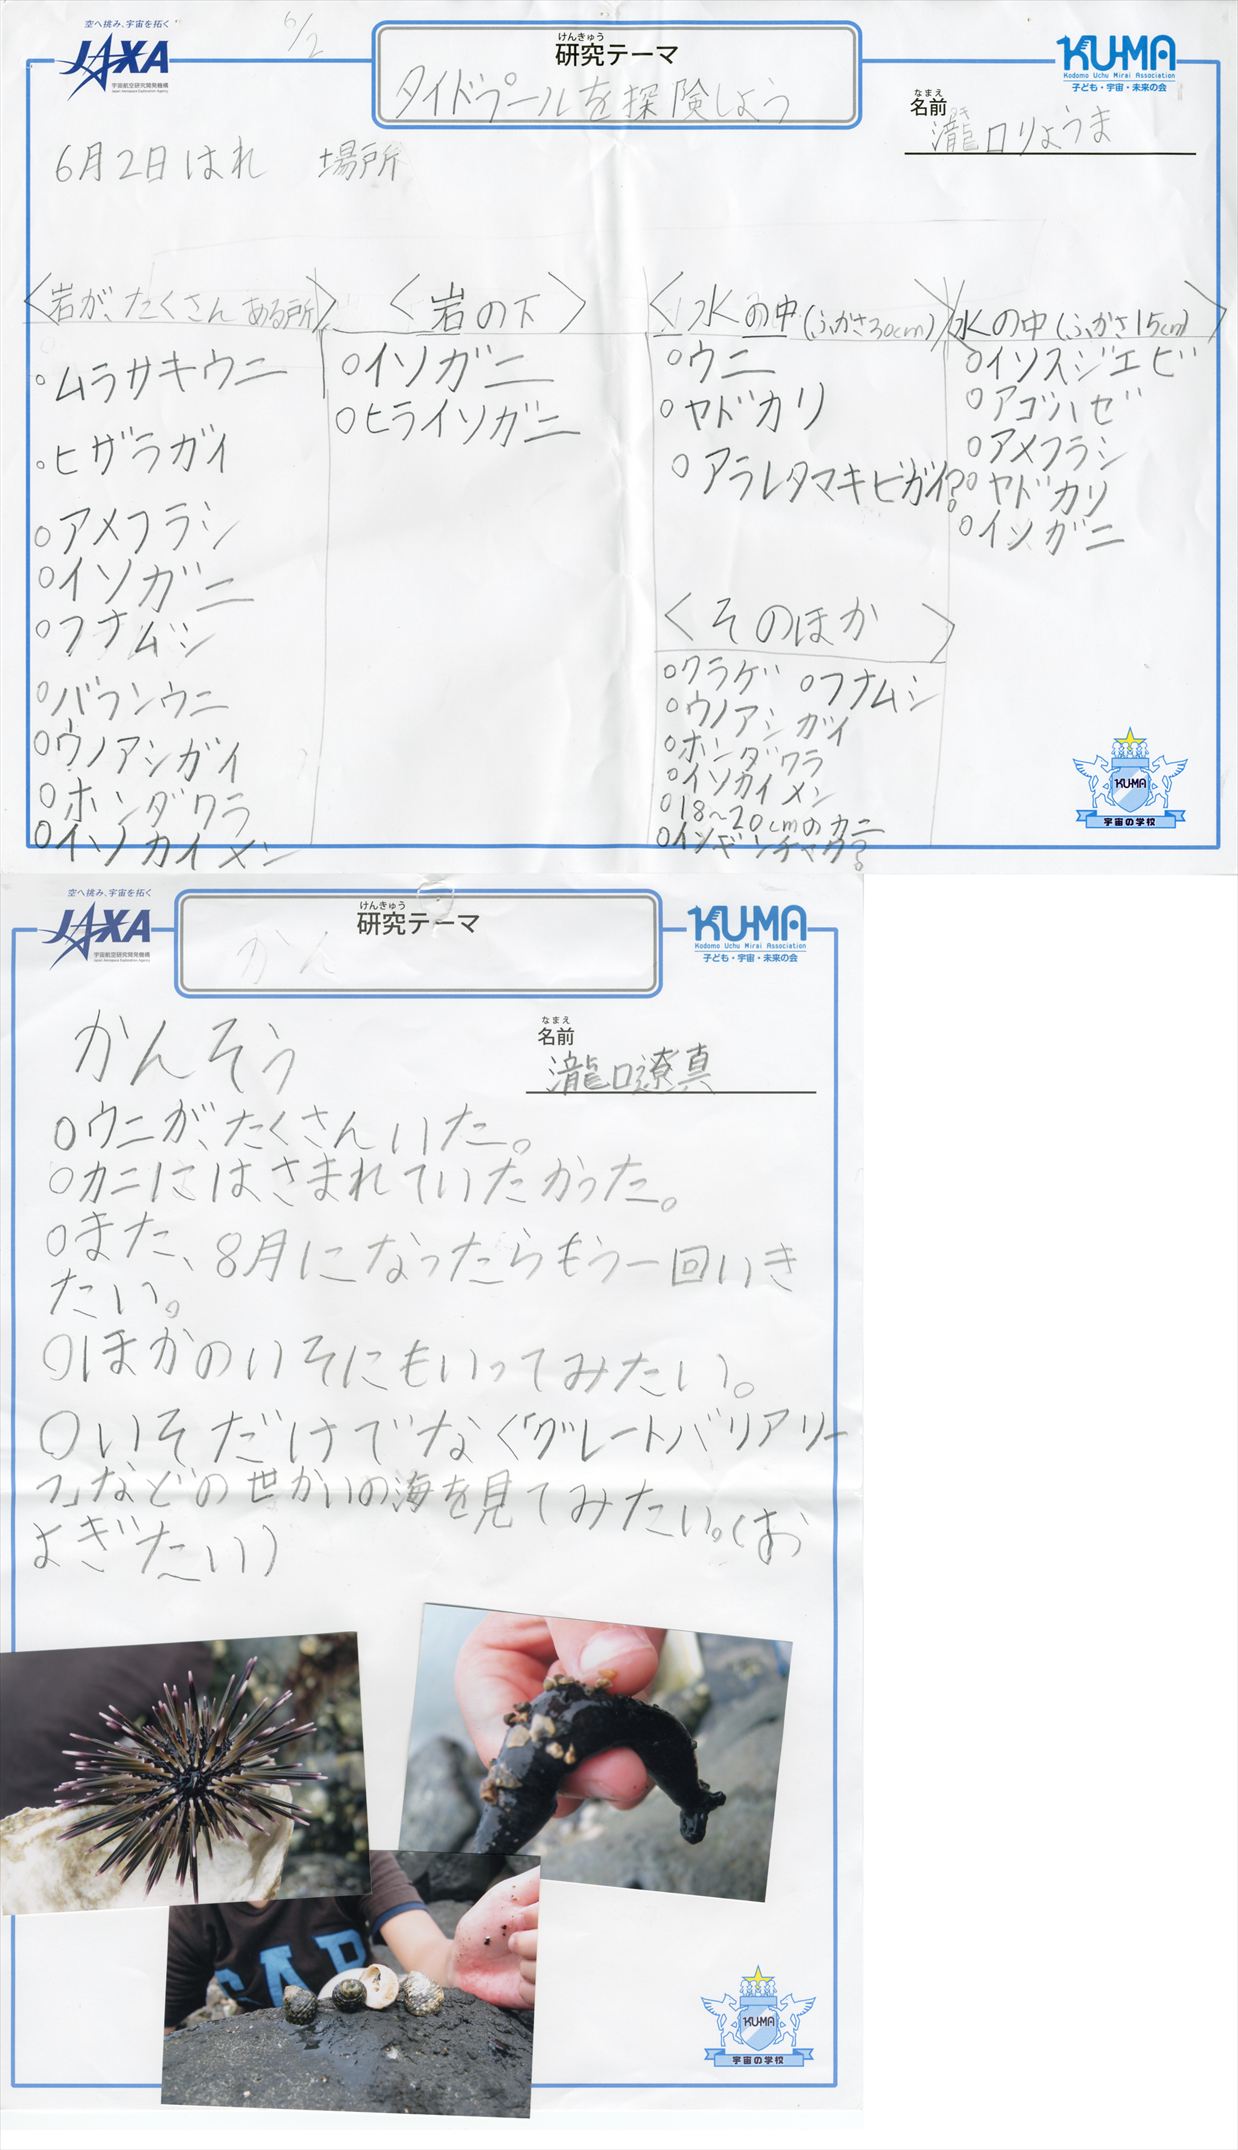 空へ挑み、宇宙を拓く
JAXA
宇宙航空研究開発機構
Japan Aerospace Exploration Agency
6/2
けんきゅう
研究テーマ
タイドプールを探険しよう
KU-MA
Kodomo Uchu Mirai Association
子ども・宇宙・未来の会
なまえ
名前
瀧口りょうま
6月2日はれ 場所
〈岩が、たくさんある所〉
ムラサキウニ
ヒザラガイ
アメフラシ
イソガニ
フナムシ
バフンウニ
ウノアシガイ
ホンダワラ
イソカイメン
〈岩の下〉
イソガニ
ヒライソガニ
〈水の中(ふかさ30cm)〉
ウニ
ヤドカリ
アラレタマキビガイ?
〈水の中(ふかさ15cm)〉
イソスジエビ
アゴハゼ
アメフラシ
ヤドカリ
イソガニ
〈そのほか〉
クラゲ フナムシ
ウノアシガイ
ホンダワラ
イソカイメン
18～20cmのカニ
イソギンチャク?
KU-MA
宇宙の学校
空へ挑み、宇宙を拓く
JAXA
宇宙航空研究開発機構
Japan Aerospace Exploration Agency
けんきゅう
研究テーマ
かん
KU-MA
Kodomo Uchu Mirai Association
子ども・宇宙・未来の会
なまえ
名前
瀧口遼真
かんそう
○ウニが、たくさんいた。
○カニにはさまれていたかった。
○また、8月になったらもう一回いき
たい。
○ほかのいそにもいってみたい。
○いそだけでなく「グレートバリアリー
フ」などの世かいの海を見てみたい。(お
よぎたい)
GAP
KU-MA
宇宙の学校